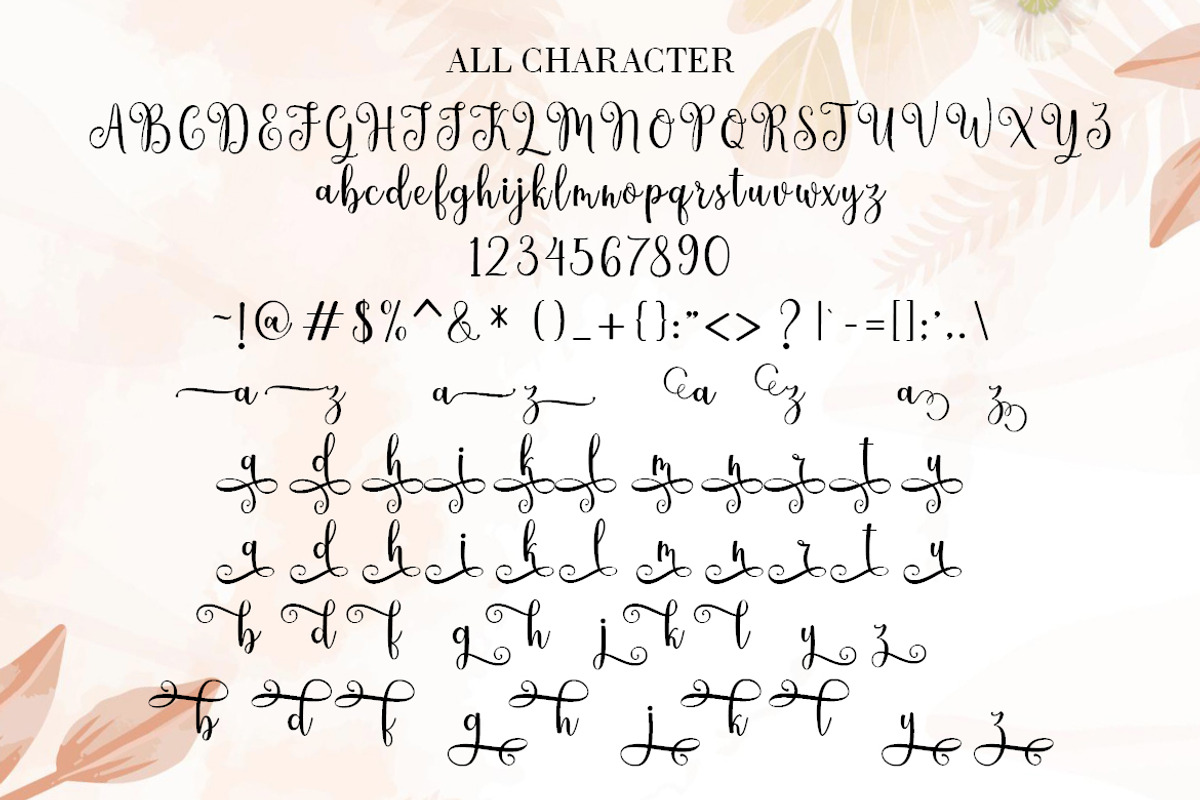 ALL CHARACTER
ABCDEFGHIJKLMNOPQRSTUVWXYZ
abcdefghijklmnopqrstuvwxyz
1234567890
~!@#$%^&* ()_+{}:"<> ?|`-=[];',.\
a z a z a z a z
a d h i k l m n r t u
a d h i k l m n r t u
b d f g h j k l y z
b d f g h j k l y z